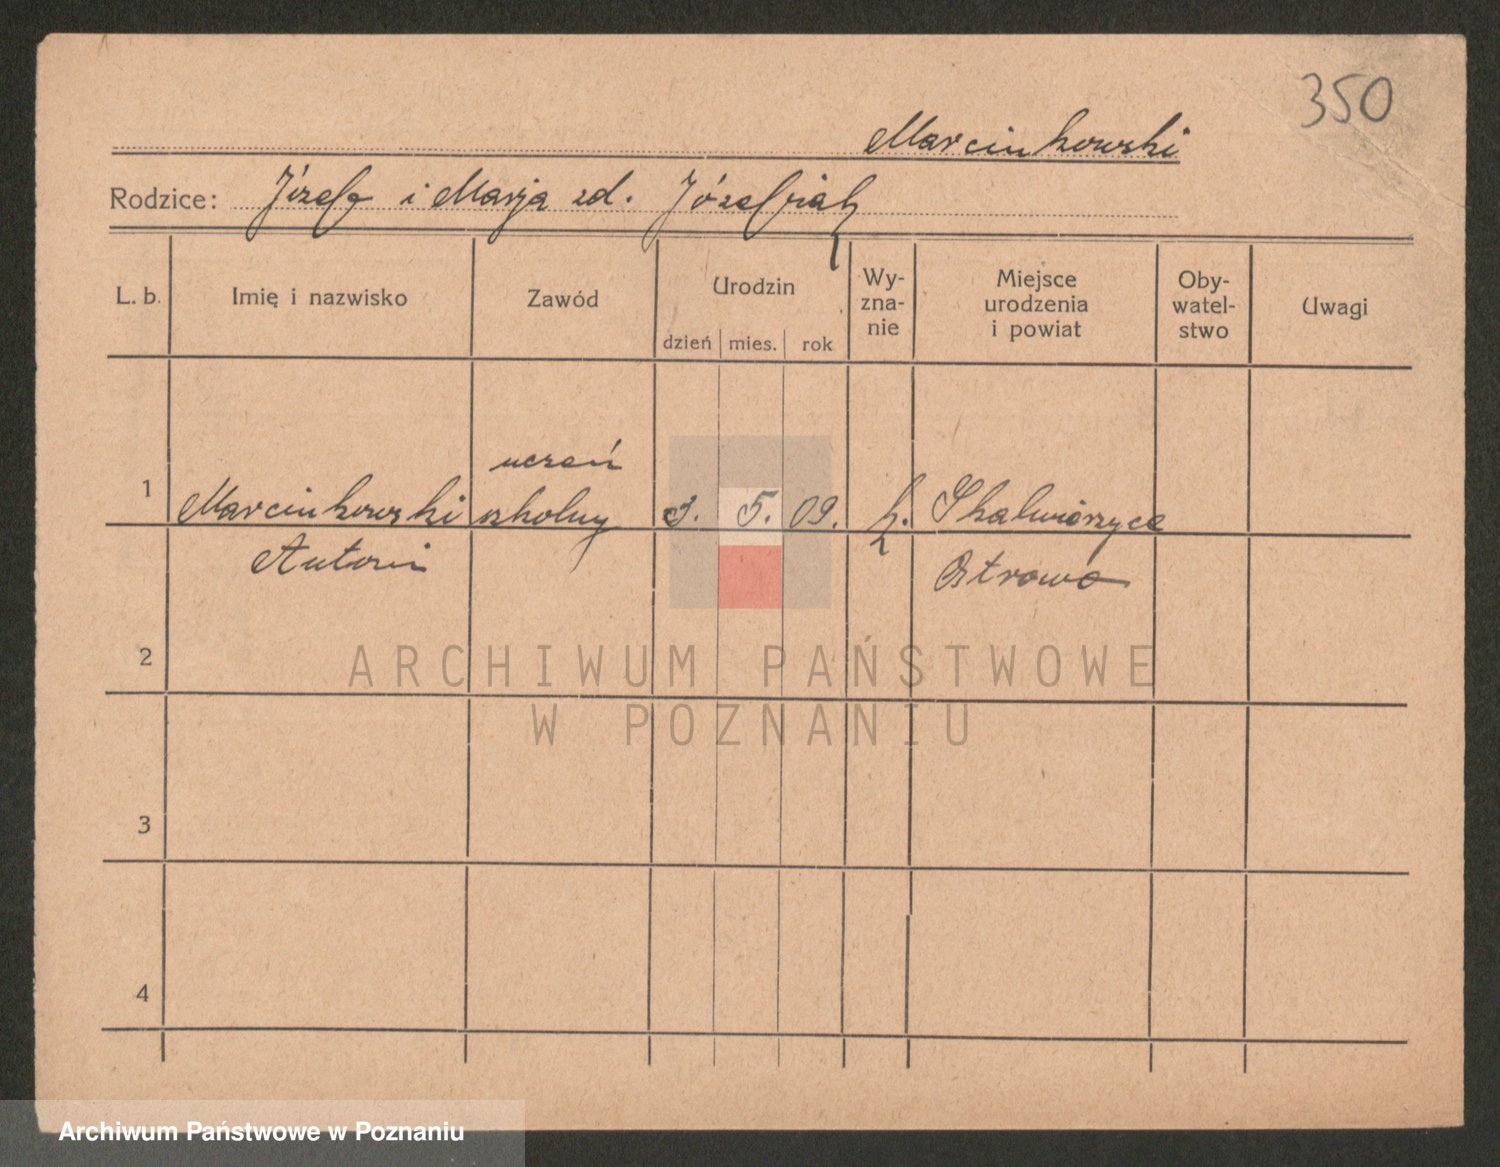 350
Marcinkowski
Rodzice: Józef i Marja zd. Józefiak
L. b. Imię i nazwisko Zawód Urodzin dzień mies. rok Wy-zna-nie Miejsce urodzenia i powiat Oby-watel-stwo Uwagi
uczeń
1 Marcinkowski szkolny 3. 5. 09. k. Skalmierzyce
Antoni Ostrowo
2
ARCHIWUM PAŃSTWOWE
W POZNANIU
3
4
Archiwum Państwowe w Poznaniu